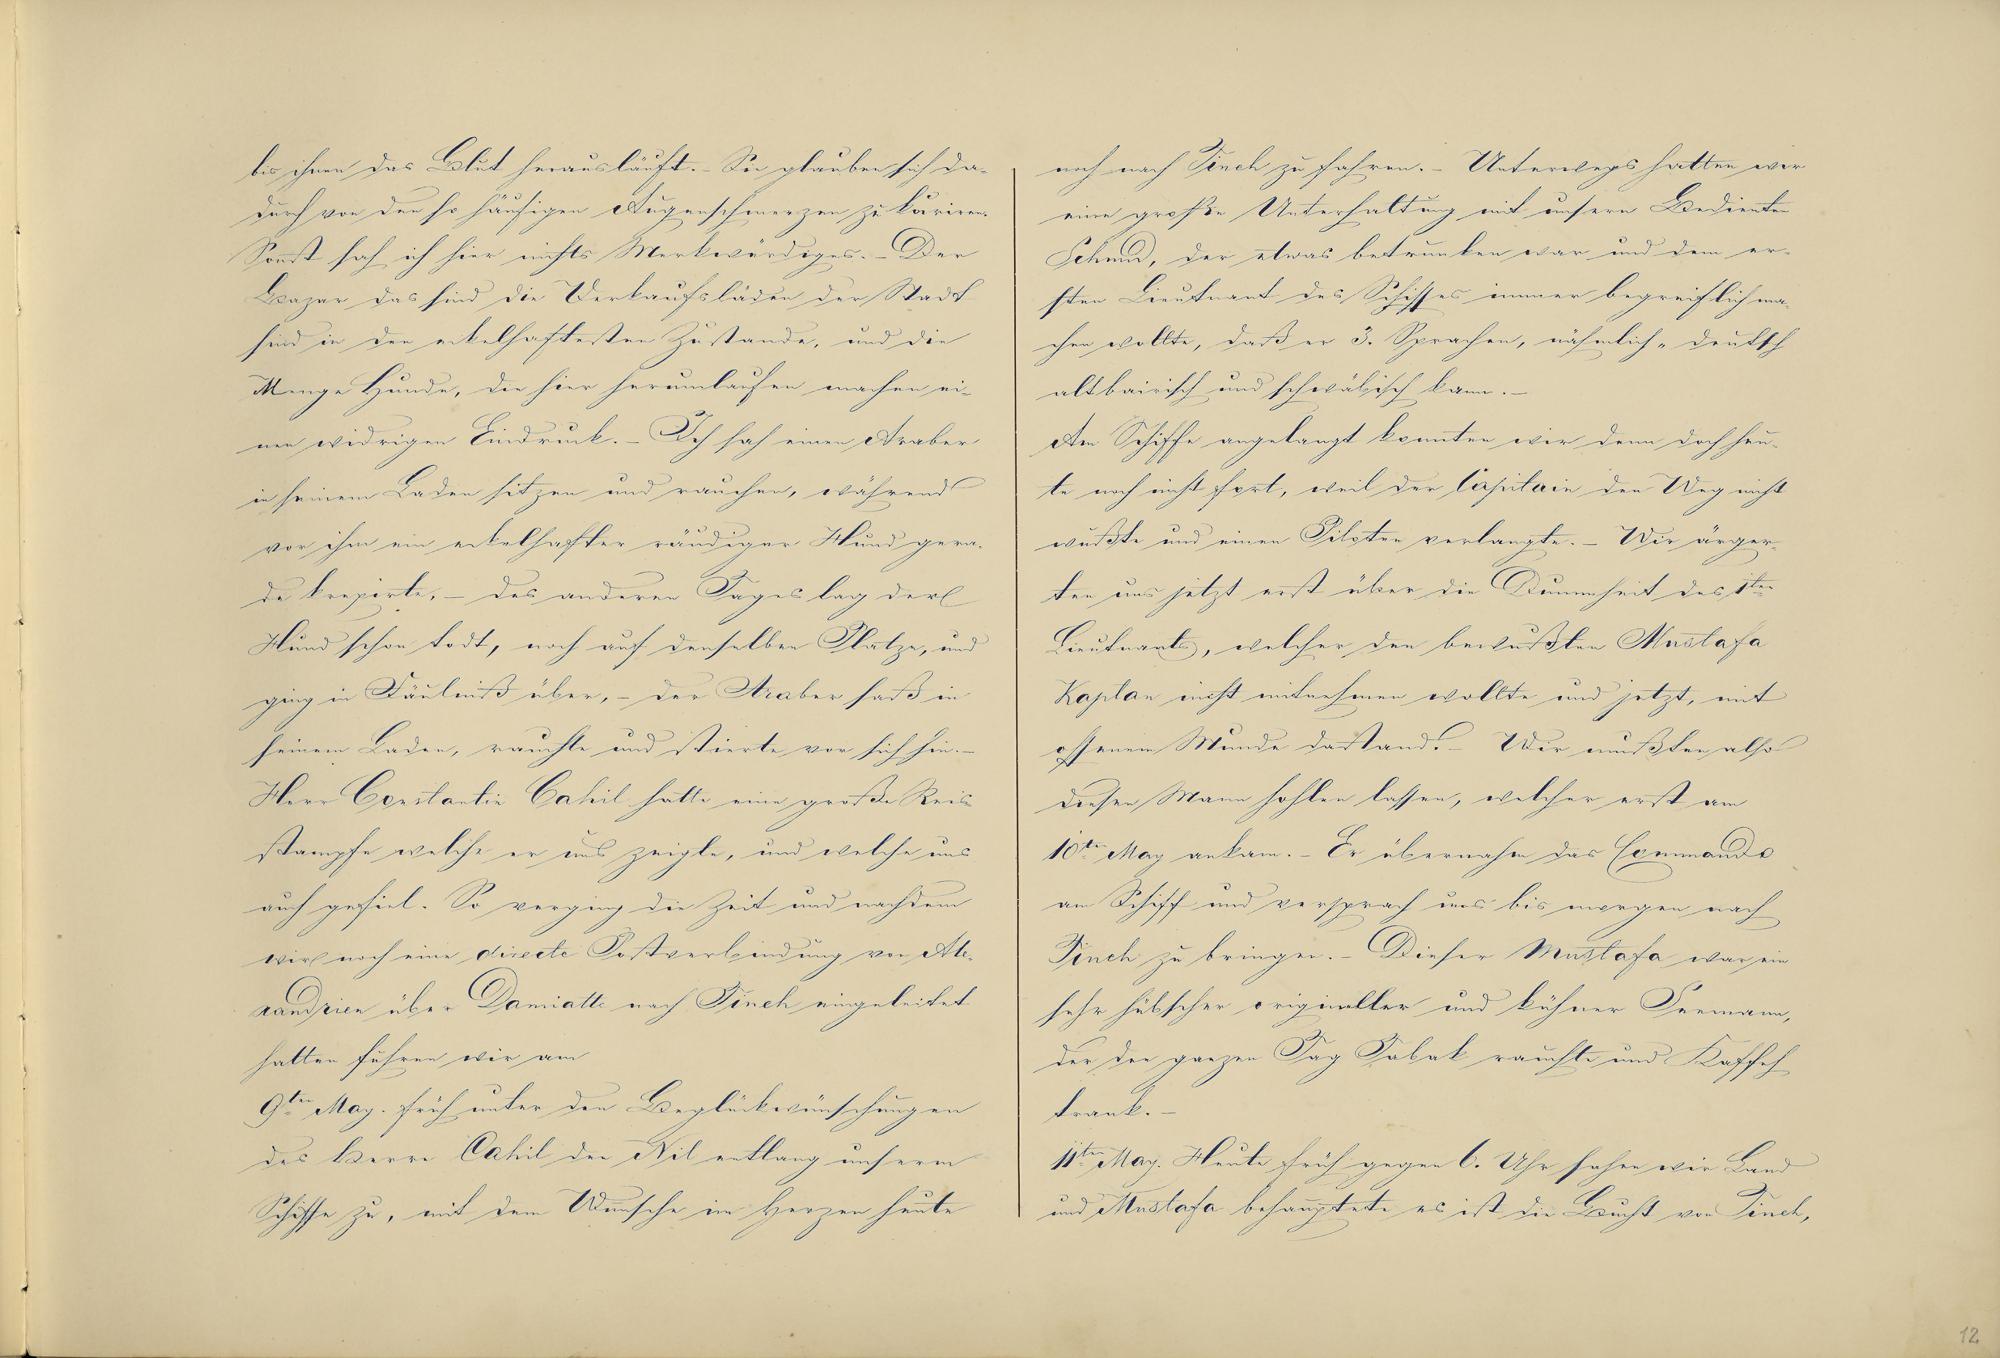 bis ihnen das Blut herausläuft. – Sie glauben sich da-
durch von den so häufigen Augenschmerzen zu kuriren.
Sonst sah ich hier nichts Merkwürdiges. – Der
Bazar das sind die Verkaufsläden der Stadt
sind in den eckelhaftesten Zustande, und die
Menge Hunde, die hier herumlaufen machen ei-
nen widrigen Eindruck. – Ich sah einen Araber
in seinem Laden sitzen und rauchen, während
vor ihm ein eckelhafter räudiger Hund gera-
de krepirte, – des anderen Tages lag der
Hund schon todt, noch auf denselben Platze, und
ging in Fäulniß über, – der Araber saß in
seinem Laden, rauchte und stierte vor sich hin. –
Herr Constantin Cahil hatte eine große Reis
stampfe welche er uns zeigte, und welche uns
auch gefiel. So verging die Zeit und nachdem
wir noch eine directe Postverbindung von Ale-
xandrien über Damiatte nach Tineh eingeleitet
hatten fuhren wir am
9ten May. früh unter den Beglückwünschungen
des Herrn Cahil den Nil entlang unserm
Schiffe zu, mit dem Wunsche im Herzen heute
noch nach Tineh zu fahren. – Unterwegs hatten wir
eine große Unterhaltung mit unsern Bedienten
Schmid, der etwas betrunken war und dem er-
sten Lieutnant des Schiffes immer begreiflich ma-
chen wollte, daß er 3. Sprachen, nähmlich „ deutsch
altbairisch und schwäbisch kann. –
Am Schiffe angelangt konnten wir denn doch heu-
te noch nicht fort, weil der Capitain den Weg nicht
wußte und einen Piloten verlangte. – Wir ärger-
ten uns jetzt erst über die Dummheit des 1ten
Lieutnants, welcher den bewußten Mustafa
Kaptan nicht mitnehmen wollte und jetzt, mit
offenem Munde dastand. – Wir mußten also
diesen Mann hohlen lassen, welcher erst am
10ten May ankam. – Er übernahm das Commando
am Schiff und versprach uns bis morgen nach
Tineh zu bringen. – Dieser Mustafa war ein
sehr hübscher origineller und kühner Seemann,
der den ganzen Tag Tabak rauchte und Kaffeh
trank. –
11ten May. Heute früh gegen 6. Uhr sahen wir Land
und Mustafa behauptete es ist die Bucht von Tineh,
12